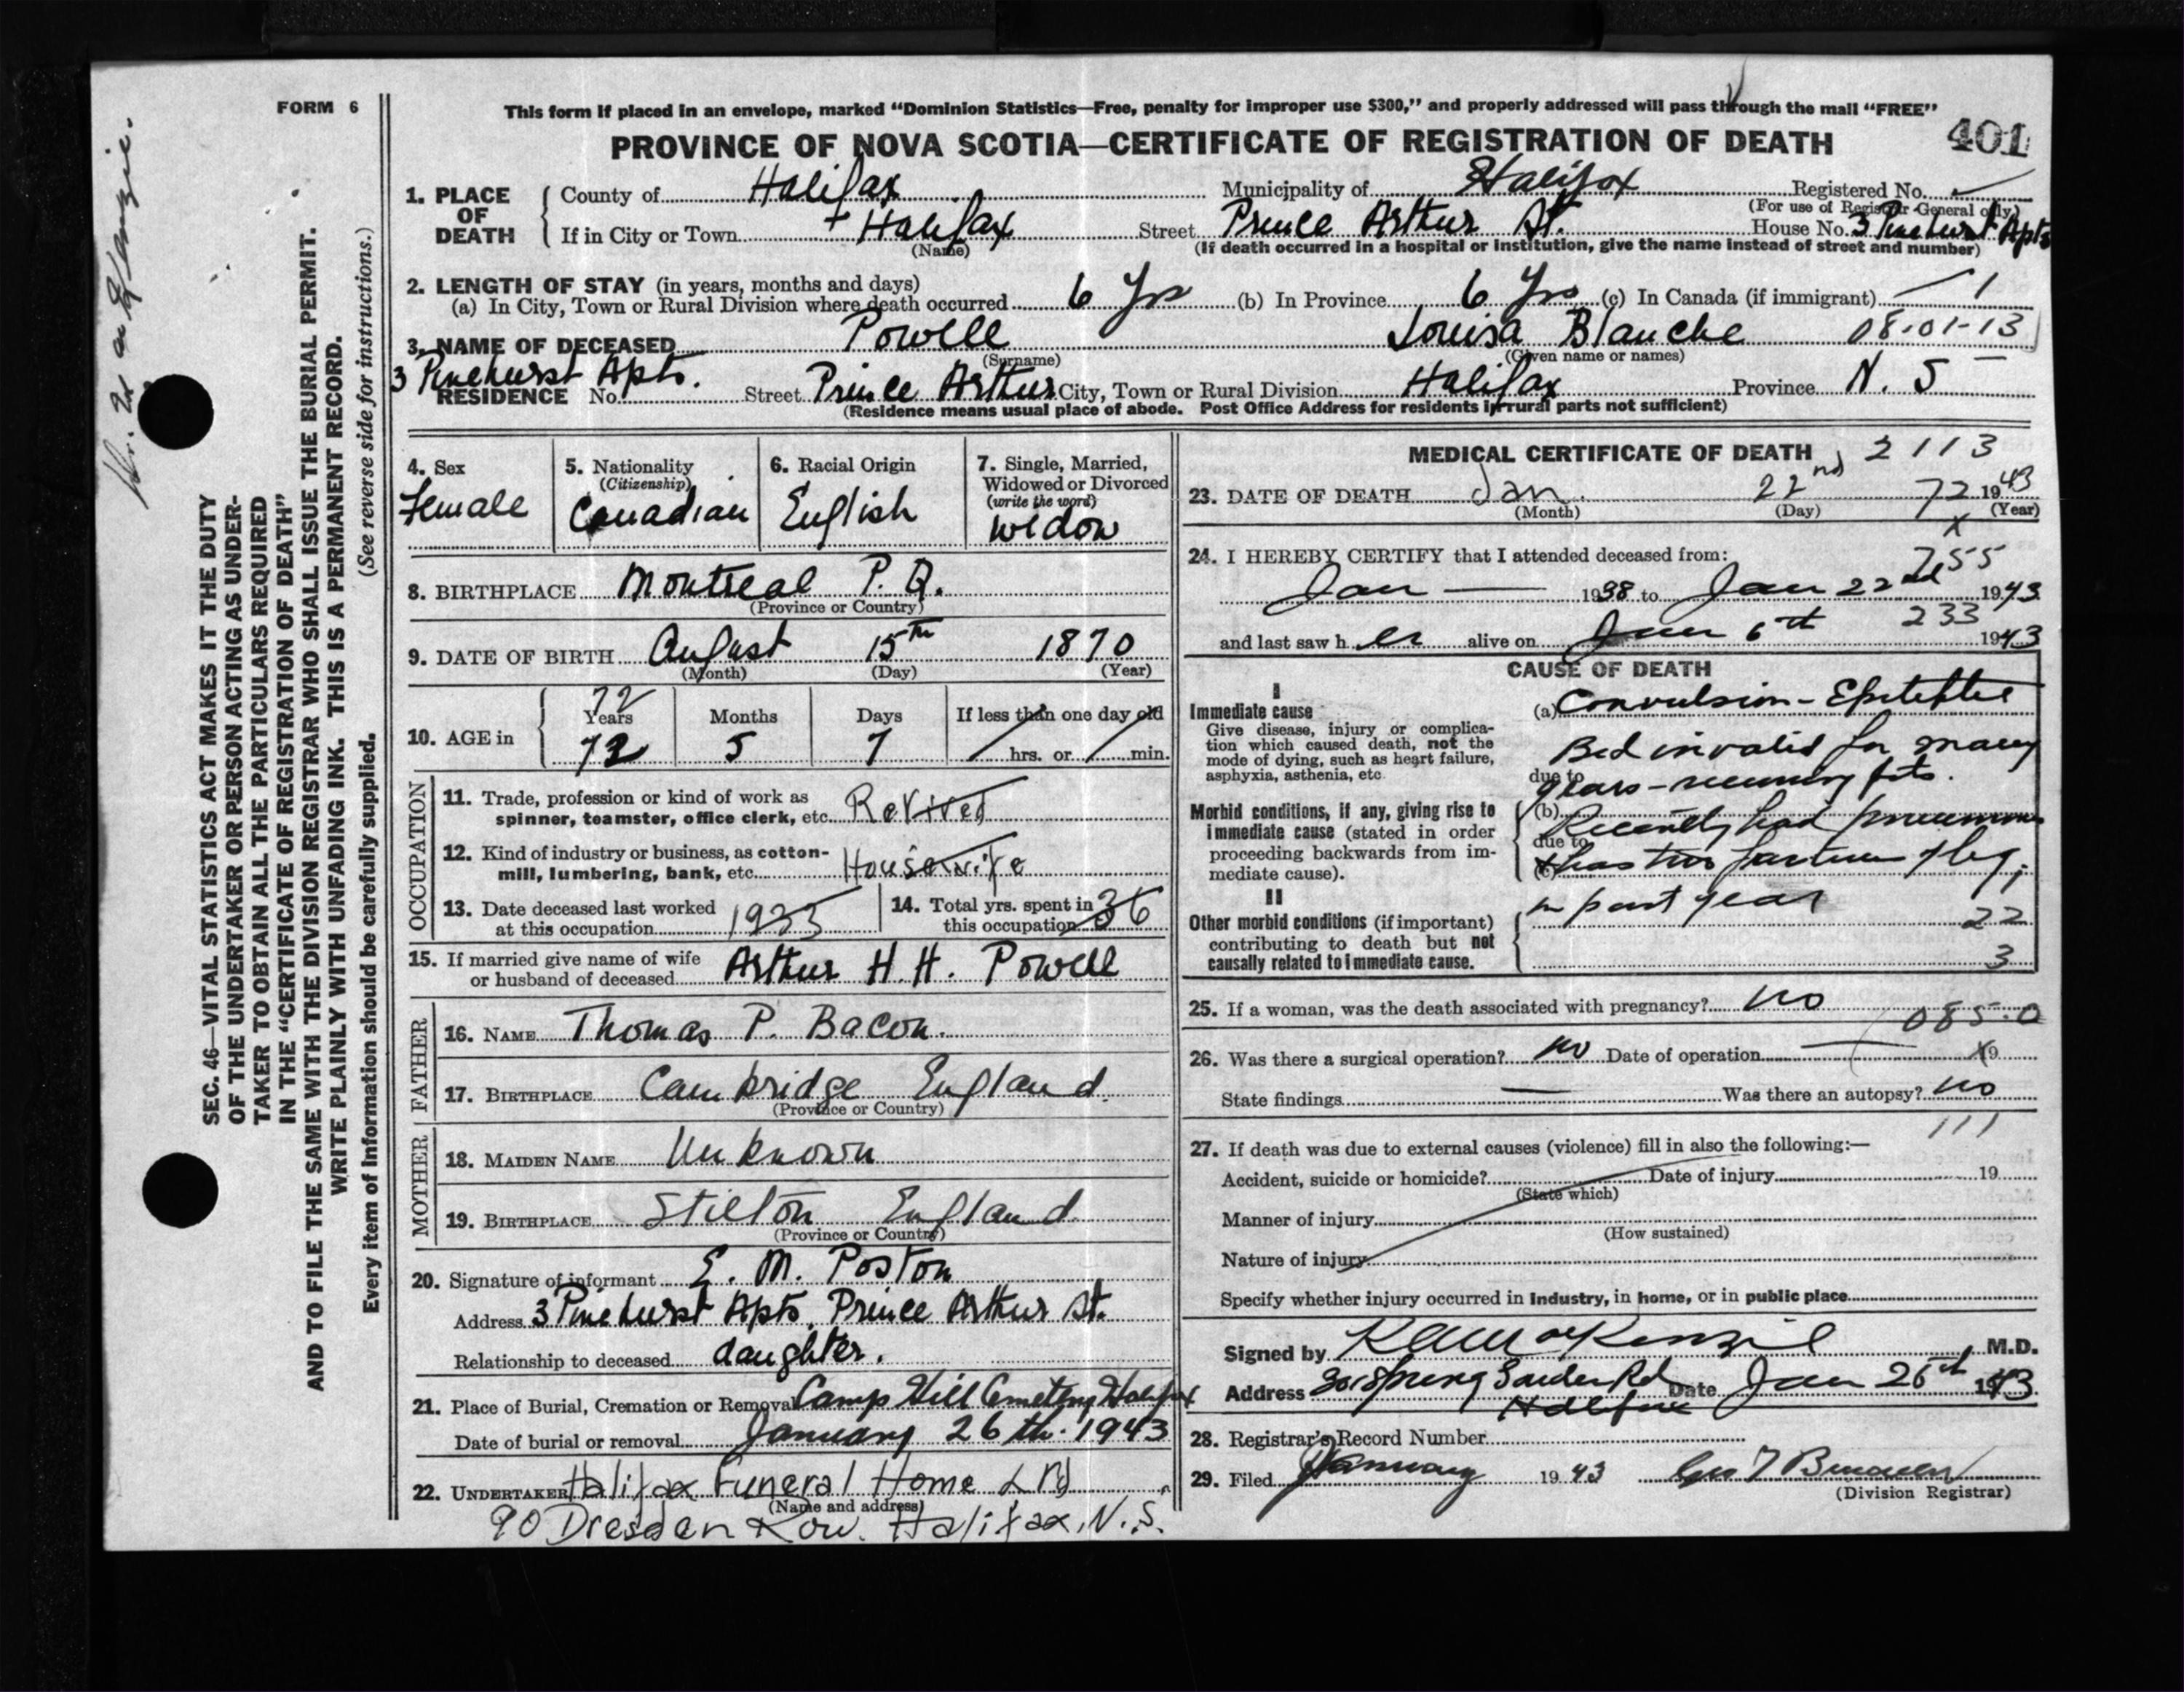 FORM 6
This form if placed in an envelope, marked "Dominion Statistics—Free, penalty for improper use $300," and properly addressed will pass through the mail "FREE"
PROVINCE OF NOVA SCOTIA—CERTIFICATE OF REGISTRATION OF DEATH
401
1. PLACE OF DEATH
County of Halifax Municipality of Halifax Registered No.
(For use of Registrar-General only)
If in City or Town Halifax Street Prince Arthur St. House No. 3 Pinehurst Apts
(Name) (If death occurred in a hospital or institution, give the name instead of street and number)
2. LENGTH OF STAY (in years, months and days)
(a) In City, Town or Rural Division where death occurred 6 Yrs (b) In Province 6 Yrs (c) In Canada (if immigrant) — 1
3. NAME OF DECEASED Powell Louisa Blanche 08-01-13
(Surname) (Given name or names)
3 Pinehurst Apts.
RESIDENCE No. Street Prince Arthur City, Town or Rural Division Halifax Province N. S
(Residence means usual place of abode. Post Office Address for residents in rural parts not sufficient)
4. Sex
Female
5. Nationality
(Citizenship)
Canadian
6. Racial Origin
English
7. Single, Married, Widowed or Divorced
(write the word)
Widow
8. BIRTHPLACE Montreal P. Q.
(Province or Country)
9. DATE OF BIRTH August 15th 1870
(Month) (Day) (Year)
10. AGE in
72
Years Months Days If less than one day old
72 5 7 hrs. or min.
OCCUPATION
11. Trade, profession or kind of work as
spinner, teamster, office clerk, etc. Retired
12. Kind of industry or business, as cotton-
mill, lumbering, bank, etc. Housewife
13. Date deceased last worked
at this occupation 1933
14. Total yrs. spent in
this occupation 36
15. If married give name of wife
or husband of deceased Arthur H H. Powell
FATHER
16. NAME Thomas P. Bacon.
17. BIRTHPLACE Cambridge England.
(Province or Country)
MOTHER
18. MAIDEN NAME Unknown
19. BIRTHPLACE Stilton England
(Province or Country)
20. Signature of informant E. M. Poston
Address 3 Pinehurst Apts, Prince Arthur St.
Relationship to deceased daughter.
21. Place of Burial, Cremation or Removal Camp Hill Cemetery Halifax
Date of burial or removal January 26th. 1943
22. UNDERTAKER Halifax Funeral Home Ltd
(Name and address)
90 Dresden Row. Halifax, N.S.
MEDICAL CERTIFICATE OF DEATH 2113
23. DATE OF DEATH Jan. 22nd 72 1943
(Month) (Day) (Year)
x
24. I HEREBY CERTIFY that I attended deceased from: 755
Jan — 1938 to Jan 22nd 1943
233
and last saw her alive on Jan 6th 1943
CAUSE OF DEATH
I
Immediate cause
Give disease, injury or complica-
tion which caused death, not the
mode of dying, such as heart failure,
asphyxia, asthenia, etc.
(a) Convulsion - Epileptic
Bed invalid for many
due to years - recurring fits.
Morbid conditions, if any, giving rise to
immediate cause (stated in order
proceeding backwards from im-
mediate cause).
(b) Recently had pneumonia
due to
(c) & has two fractures of leg,
in past year
II
Other morbid conditions (if important)
contributing to death but not
causally related to immediate cause.
22
3
25. If a woman, was the death associated with pregnancy? no
085.0
26. Was there a surgical operation? no Date of operation — 19
State findings — Was there an autopsy? no
111
27. If death was due to external causes (violence) fill in also the following:—
Accident, suicide or homicide? Date of injury 19
(State which)
Manner of injury
(How sustained)
Nature of injury
Specify whether injury occurred in industry, in home, or in public place
Signed by MacKenzie M.D.
Address Spring Garden Rd Date Jan 26th 1943
Halifax
28. Registrar's Record Number
29. Filed January 1943
(Division Registrar)
SEC. 46—VITAL STATISTICS ACT MAKES IT THE DUTY
OF THE UNDERTAKER OR PERSON ACTING AS UNDER-
TAKER TO OBTAIN ALL THE PARTICULARS REQUIRED
IN THE "CERTIFICATE OF REGISTRATION OF DEATH"
AND TO FILE THE SAME WITH THE DIVISION REGISTRAR WHO SHALL ISSUE THE BURIAL PERMIT.
WRITE PLAINLY WITH UNFADING INK. THIS IS A PERMANENT RECORD.
(See reverse side for instructions.)
Every item of information should be carefully supplied.